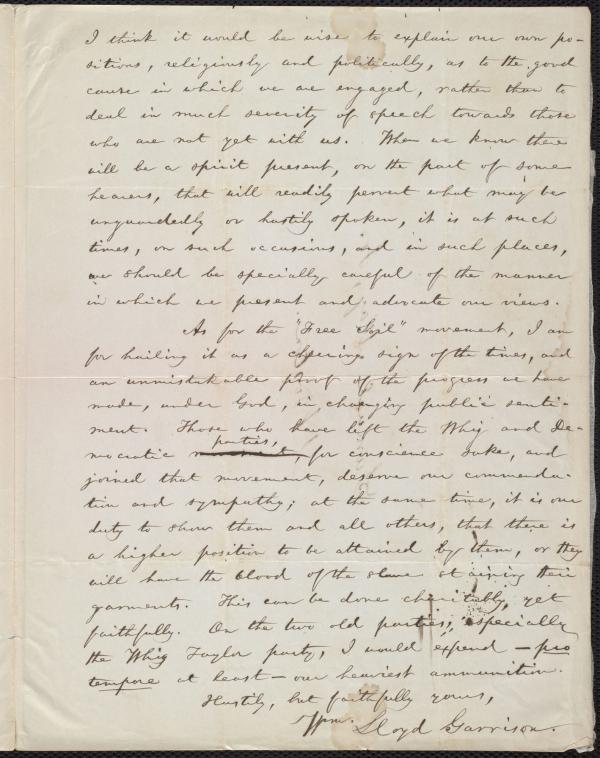 I think it would be wise to explain our own po-
sitions, religiously and politically, as to the good
cause in which we are engaged, rather than to
deal in much severity of speech towards those
who are not yet with us. When we know there
will be a spirit present, on the part of some
hearers, that will readily pervert what may be
unguardedly or hastily spoken, it is at such
times, on such occasions, and in such places,
we should be specially careful of the manner
in which we present and advocate our views.
As for the "Free Soil" movement, I am
for hailing it as a cheering sign of the times, and
an unmistakable proof of the progress we have
made, under God, in changing public senti-
ment. Those who have left the Whig and De-
parties,
mocratic for conscience sake, and
joined that movement, deserve our commenda-
tion and sympathy; at the same time, it is our
duty to show them and all others, that there is
a higher position to be attained by them, or they
will have the blood of the slave staining their
garments. This can be done charitably, yet
faithfully. On the two old parties, especially
the Whig Taylor party, I would expend — pro
tempore at least — our heaviest ammunition.
Hastily, but faithfully yours,
Wm. Lloyd Garrison.